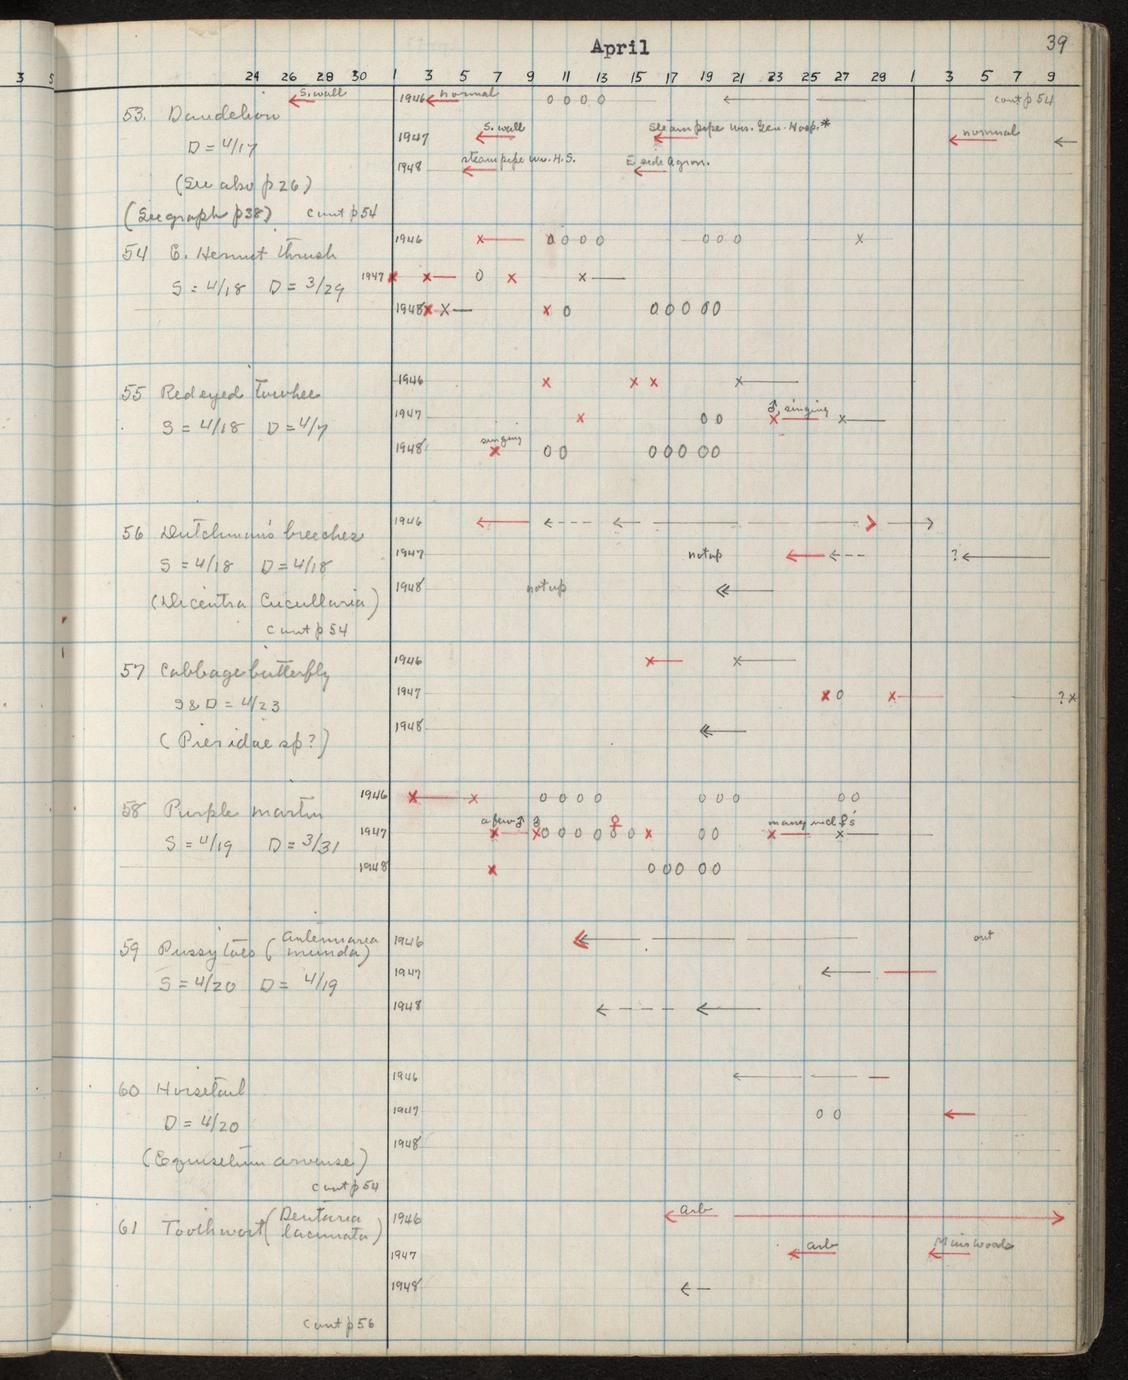 April
39
3 5 24 26 28 30 1 3 5 7 9 11 13 15 17 19 21 23 25 27 29 1 3 5 7 9
S. wall 1946 normal 0 0 0 0 cont p 54
53. Dandelion
1947 S. wall Steam pipe Wis. Gen. Hosp.* normal
D = 4/17
1948 steam pipe Wis. H.S. E side Agron.
(See also p 26)
(See graph p38) cont p 54
1946 x 0 0 0 0 0 0 0 x
54 E. Hermit thrush
1947 x x 0 x x
S = 4/18 D = 3/29
1948 x x x 0 0 0 0 0 0
55 Red eyed Towhee
1946 x x x x
1947 x 0 0 ♂, singing x x
S = 4/18 D = 4/7
singing
1948 x 0 0 0 0 0 0 0
56 Dutchman's breeches
1946
S = 4/18 D = 4/18
1947 not up ?
1948 not up
(Dicentra Cucullaria)
cont p 54
57 Cabbage butterfly
1946 x x
1947 x 0 x ? x
S & D = 4/23
1948
(Pieridae sp?)
1946 x x 0 0 0 0 0 0 0 0 0
58 Purple martin
a few ♂ ♀ many incl ♀'s
1947 x x 0 0 0 0 0 0 x 0 0 x x
S = 4/19 D = 3/31
1948 x 0 0 0 0 0
59 Pussytoes (Antennaria
munda)
1946 out
1947
S = 4/20 D = 4/19
1948
60 Horsetail
1946
1947 0 0
D = 4/20
1948
(Equisetum arvense)
cont p 54
61 Toothwort (Dentaria
laciniata)
1946 Arb
1947 Arb Muirs Woods
1948
cont p 56